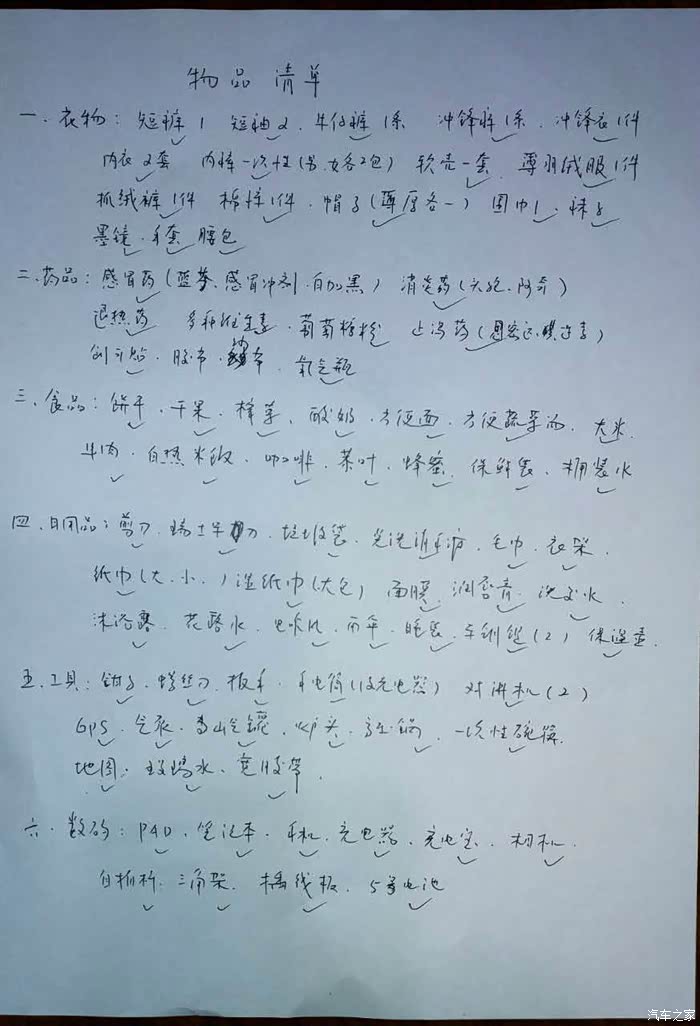 物品清单
一、衣物：短裤1 短袖2、牛仔裤1条 冲锋裤1条、冲锋衣1件
内衣2套 内裤一次性(男、女各2包) 软壳一套、薄羽绒服1件
抓绒裤1件 棉裤1件、帽子(薄厚各一) 围巾1、袜子
墨镜、手套 腰包
二、药品：感冒药(蓝芩、感冒冲剂、白加黑) 消炎药(头孢、阿奇)
退热药 多种维生素、葡萄糖粉 止泻药(思密达、)
创可贴、胶布、氧气瓶
三、食品：饼干、干果、榨菜、酸奶、方便面、方便蔬菜汤、大米、
牛肉、自热米饭、咖啡、茶叶、蜂蜜、保鲜袋、桶装水
四、日用品：剪刀、瑞士军刀、垃圾袋、免洗洗手液、毛巾、衣架、
纸巾(大、小、) 湿纸巾(大包) 面膜、润唇膏、洗发水、
沐浴露、花露水、电吹风、雨伞、睡袋、车钥匙(2) 保温壶、
五、工具：钳子、螺丝刀、板手、手电筒(1及充电器) 对讲机(2)
GPS、气床、高山气罐、炉头、高压锅、一次性碗筷、
地图、玻璃水、宽胶带、
六、数码：PAD、笔记本、手机、充电器、充电宝、相机、
自拍杆、三角架、插线板、5号电池
汽车之家